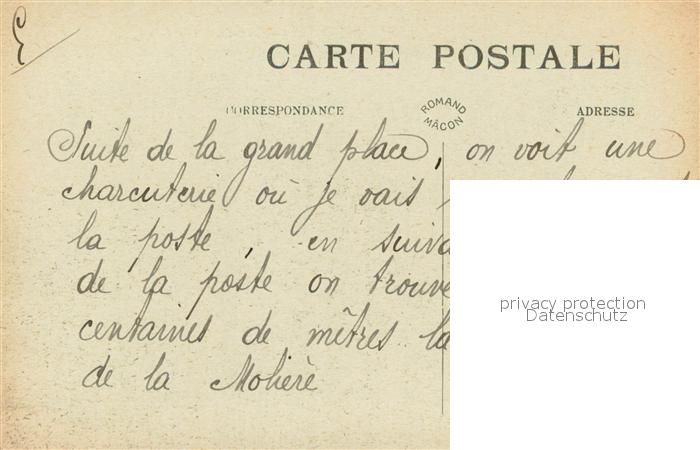 E
CARTE POSTALE
CORRESPONDANCE
ROMAND
MÂCON
ADRESSE
Suite de la grand place, on voit une
charcuterie où je vais
la poste, en suiva
de la poste on trouve
centaines de mêtres la
de la Molière
privacy protection
Datenschutz